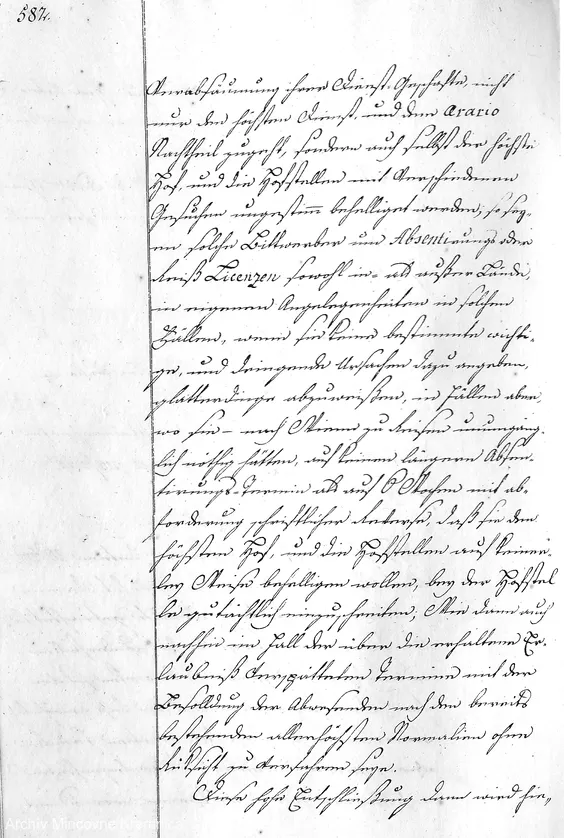 582.
Verabsäumung ihrer Dienst-Geschäfte, nicht
nur den höchsten Dienst, und dem Ærario
Nachtheil zugeht, sondern auch selbst der höchste
Hof, und die Hofstellen mit verschiedenen
Gesuchen ungestimm behelliget werden; so sey-
en solche Bittwerber um Absentirungs oder
Reiß Licenzen sowohl in- als außer Lande,
in eigenen Angelegenheiten in solchen
Fällen, wenn sie keine bestimmte wichti-
ge, und dringende Ursachen dazu angeben,
glatterdings abzuweißen, in Fällen aber,
wo sie nach Wienn zu Reisen unumgäng-
lich nöthig hätten, auf keinen längern Absen-
tirungs-Termin als auf 6 Wochen mit ab-
forderung schriftlicher Reverse, daß sie den
höchsten Hof, und die Hofstellen auf keiner-
ley Weise behelligen wollen, bey der Hofstel
le gutächtlich einzuschreiten; Wie dann auch
nachhin im Fall der über die erhaltene Er-
laubniß verspätteten Termine mit der
Besolldung der Abwesenden nach den bereits
bestehenden allerhöchsten Normalien ohne
Rüksicht zu verfahren seye.
Diese hohe Entschließung dann wird hie-
Archiv Mincovne Kremnica